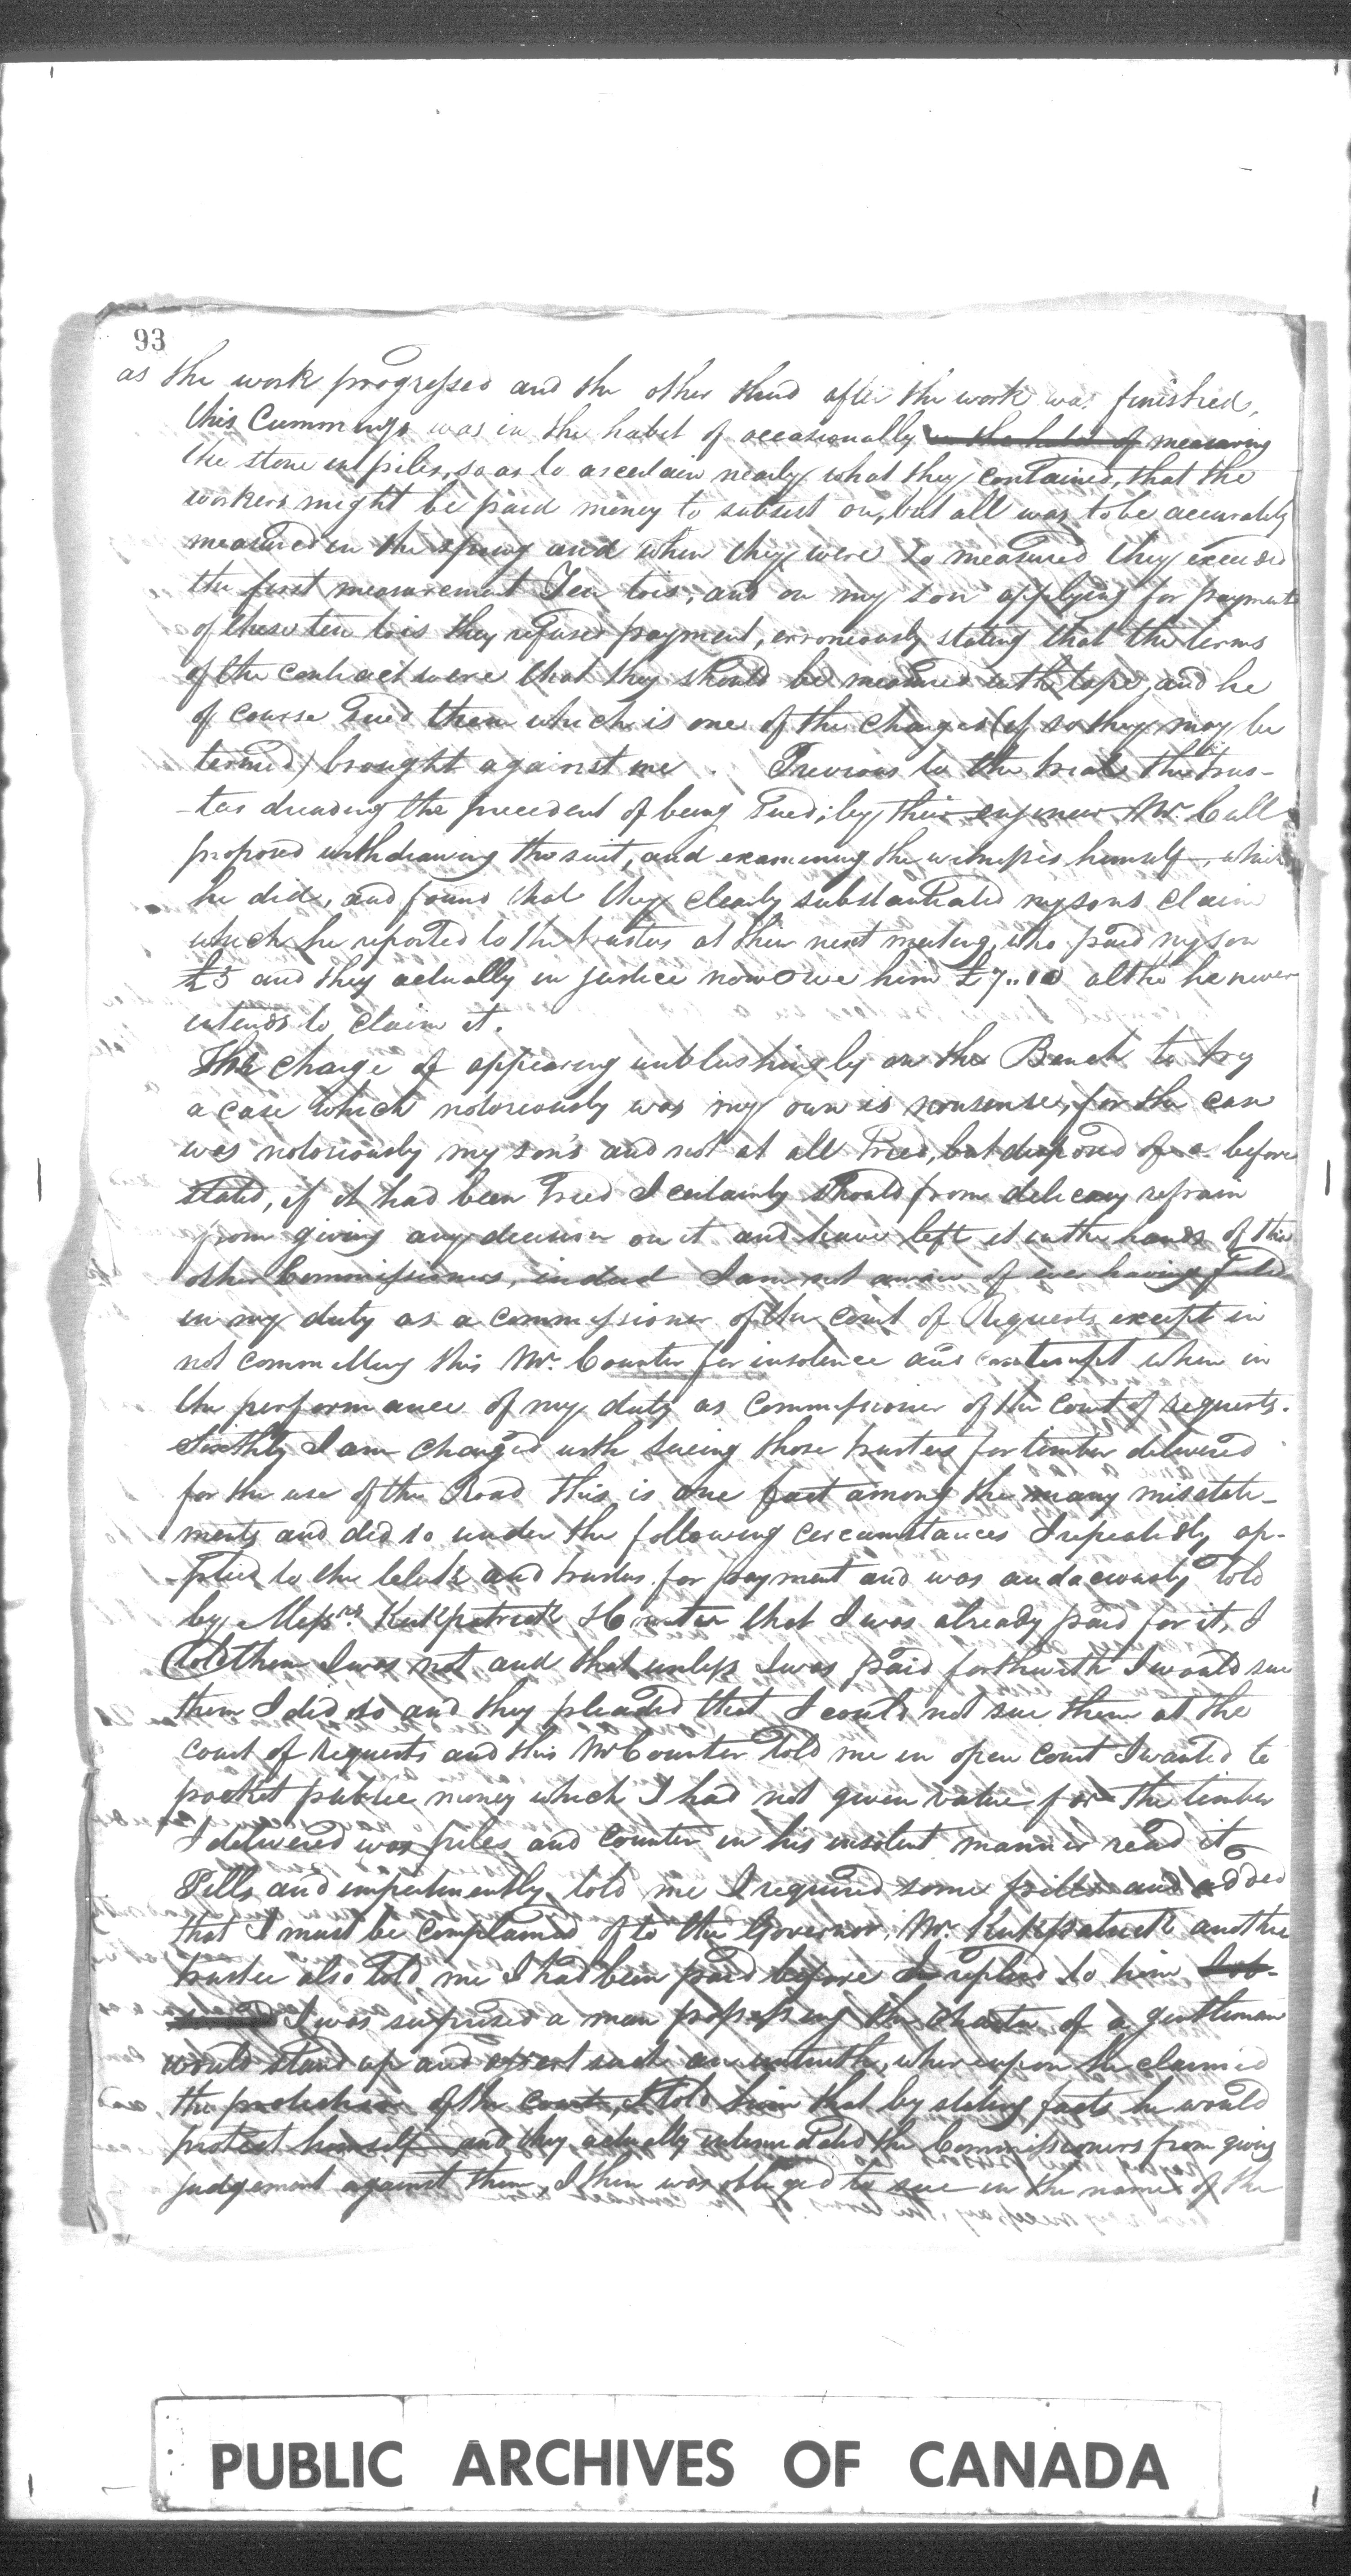 93
as the work progressed and the other third after the work was finished,
this Cummings was in the habit of occasionally in the habit of measuring
the stone in piles, so as to ascertain nearly what they contained, that the
workers might be paid money to subsist on, but all was to be accurately
measured in the spring and when they were so measured they exceeded
the first measurement Ten tois, and on my son applying for payment
of these ten tois they refused payment, erroneously stating that the terms
of the contract were that they should be measured with tape, and he
of course Sued them which is one of the charges (if so they may be
termed) brought against me. Previous to the trial the trus-
-tees dreading the precedent of being Sued; by their engineer Mr. Cull
proposed withdrawing the suit, and examining the witnesses himself, which
he did, and found that they clearly substantiated my sons claim
which he reported to the trustees at their next meeting, who paid my son
£5 and they actually in justice now owe him £7..10 altho he never
intends to claim it.
The charge of appearing unblushingly on the Bench to try
a case which notoriously was my own is nonsense, for the case
was notoriously my son's and not at all Tried, but disposed of as before
stated, if it had been Tried I certainly should from delicacy refrain
from giving any decision on it and have left it in the hands of the
other Commissioners, indeed I am not aware of ever having failed
in my duty as a commissioner of the court of Requests except in
not committing this Mr. Counter for insolence and contempt when in
the performance of my duty as Commissioner of the Court of requests.
Sixthly I am charged with sueing those trustees for timber delivered
for the use of the Road this is one fact among the many misstate-
ments and did so under the following circumstances I repeatedly ap-
-plied to the Clerk and trustees for payment and was audaciously told
by Messrs. Kirkpatrick & Counter that I was already paid for it, I
told them I was not and that unless I was paid forthwith I would sue
them I did so and they pleaded that I could not sue them at the
court of requests and this Mr Counter told me in open court I wanted to
pocket public money which I had not given value for the timber
I delivered was piles and Counter in his insolent manner read it
Pills and impertinently told me I required some pills and added
that I must be complained of to the Governor, Mr. Kirkpatrick another
trustee also told me I had been paid before I replied to him
I was surprised a man professing the character of a gentleman
would stand up and assert such an untruth, whereupon he claimed
the protection of the court, I told him that by stating facts he would
protect himself and they actually intimidated the Commissioners from giving
judgement against them, I then was obliged to sue in the name of the
PUBLIC ARCHIVES OF CANADA